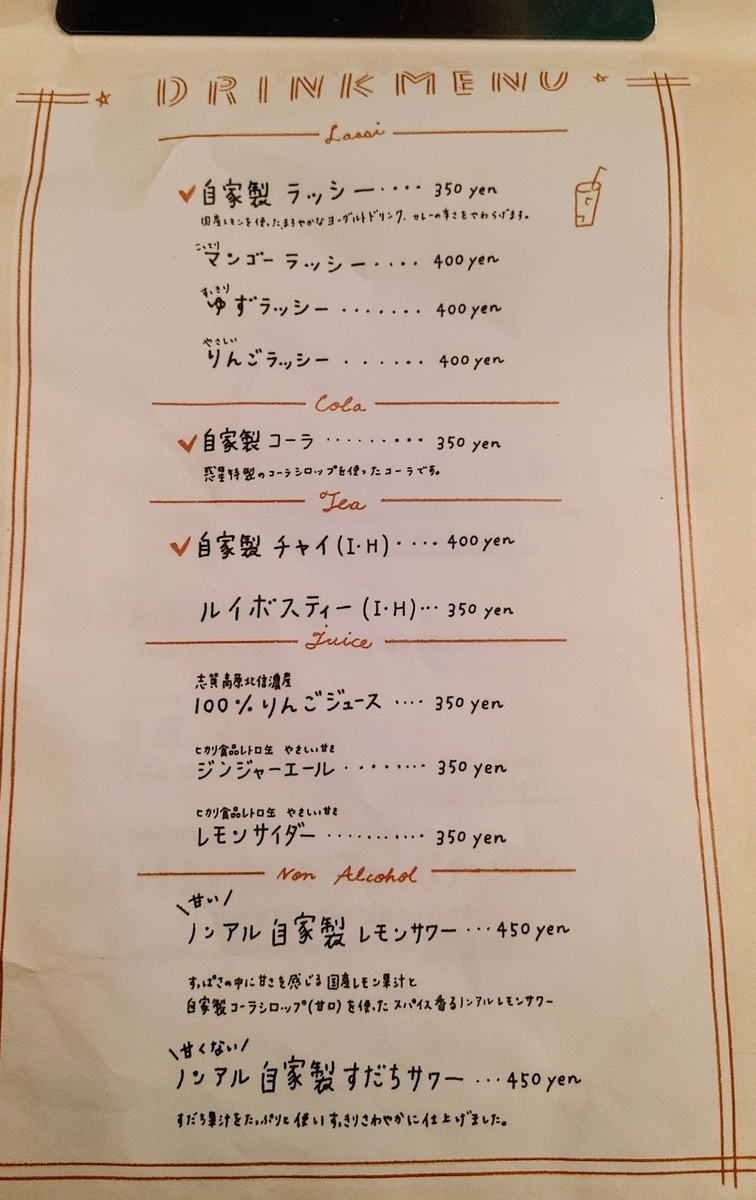 DRINK MENU
Lassi
自家製 ラッシー････ 350 yen
国産レモンを使ったまろやかなヨーグルトドリンク。カレーの辛さをやわらげます。
こってり
マンゴー ラッシー････ 400 yen
すっきり
ゆずラッシー ･･･････ 400 yen
やさしい
りんごラッシー ･･････ 400 yen
Cola
自家製 コーラ ･････････ 350 yen
惑星特製のコーラシロップを使ったコーラです。
Tea
自家製 チャイ(I･H)････ 400 yen
ルイボスティー (I･H)･･･ 350 yen
Juice
志賀高原北信濃産
100%りんごジュース ････ 350 yen
ヒカリ食品レトロ缶 やさしい甘さ
ジンジャーエール ････････ 350 yen
ヒカリ食品レトロ缶 やさしい甘さ
レモンサイダー ･･･････････ 350 yen
Non Alcohol
\甘い/
ノンアル 自家製 レモンサワー ･･･450 yen
すっぱさの中に甘さを感じる国産レモン果汁と
自家製コーラシロップ(甘口)を使ったスパイス香るノンアルレモンサワー
\甘くない/
ノンアル 自家製すだちサワー ･･･450 yen
すだち果汁をたっぷりと使いすっきりさわやかに仕上げました。